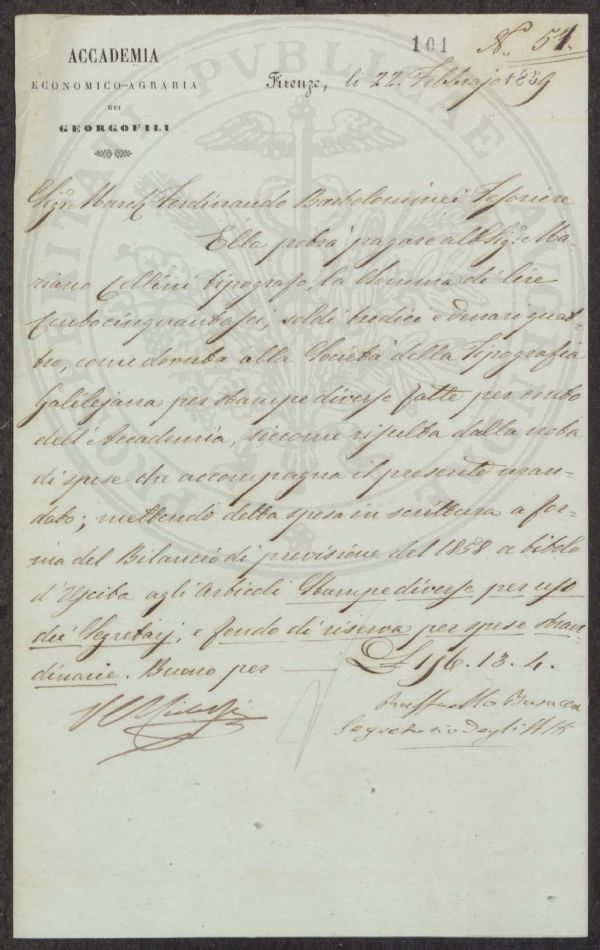 101 N. 51.
ACCADEMIA
ECONOMICO-AGRARIA
DEI
GEORGOFILI
Firenze, li 22. Febbrajo 1859
Sig.r March. Ferdinando Bartolommei Tesoriere
Ella potrà pagare al Sig.r Ma-
riano Cellini tipografo, la Somma di lire
Centocinquantasei, soldi tredici e denari quat-
tro, come dovuta alla Società della Tipografia
Galilejana per stampe diverse fatte per conto
dell'Accademia, siccome risulta dalla nota
di spese che accompagna il presente man-
dato; mettendo detta spesa in scrittura a for-
ma del Bilancio di previsione del 1858 a titolo
d'Uscita agli articoli Stampe diverse per uso
dei Segretarj, e fondo di riserva per spese straor-
dinarie. Buono per £ 156. 13. 4.
Raffaello Busacca
Segretario degli Atti
PVBLICAE